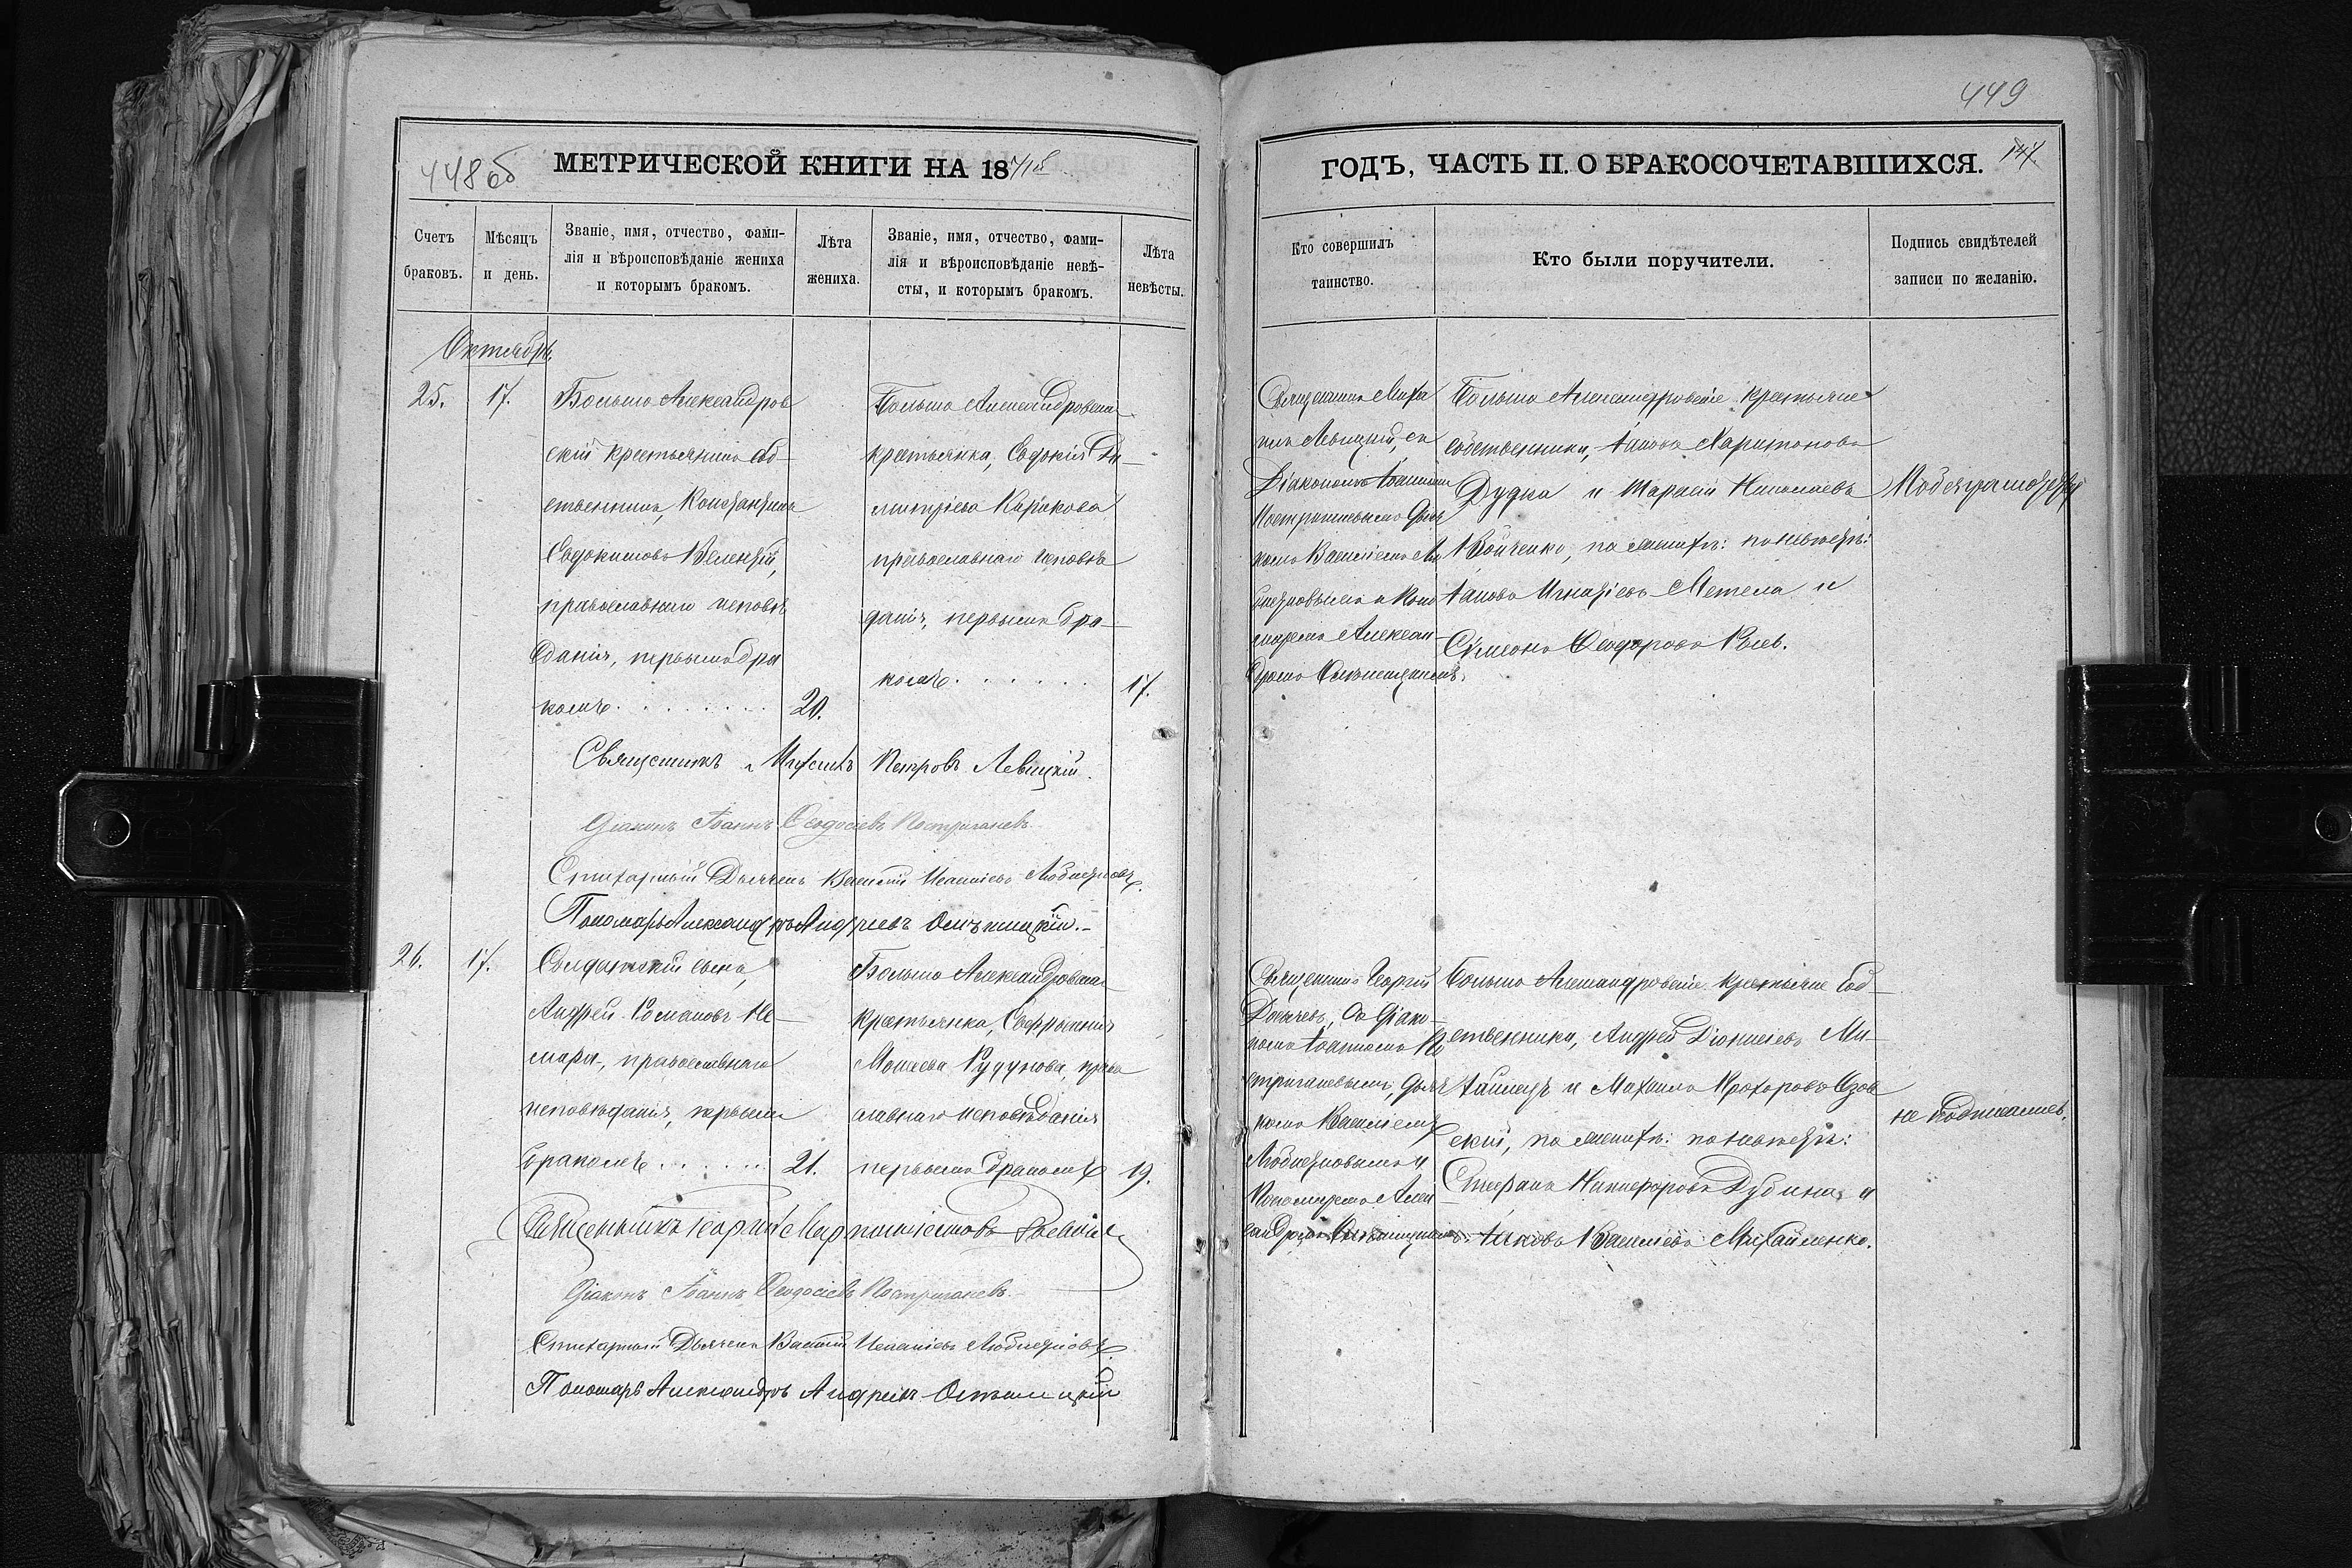 448 об
МЕТРИЧЕСКОЙ КНИГИ НА 1871й
Счетъ браковъ.
Мѣсяцъ и день.
Званіе, имя, отчество, фами-
лія и вѣроисповѣданіе жениха
и которымъ бракомъ.
Лѣта жениха.
Званіе, имя, отчество, фами-
лія и вѣроисповѣданіе невѣ-
сты, и которымъ бракомъ.
Лѣта невѣсты.
Октябрь
25.
17.
Больше Александров
скій крестьянинъ соб-
ственникъ, Константинъ
Евдокимовъ
православнаго исповѣ
данія, первымъ бра
комъ
20.
Больше Александровская
крестьянка, Евдокія Ди-
митріева Кирикова
православнаго исповѣ
данія, первымъ бра-
комъ
17.
Священникъ Михаилъ Петровъ Левицкій.
Діаконъ Іоаннъ Ѳеодосіевъ Постригачевъ
Стихарный Дьячекъ Василій
Пономарь Александръ Андреевъ
26.
17.
Солдатскій сынъ,
Андрей Романовъ Не-
мара, православнаго
исповѣданія, первымъ
бракомъ
21.
Больше Александровская
крестьянка, Евфросинія
Моисеева Рудукова, право
славнаго исповѣданія
первымъ бракомъ
19.
Священникъ Георгій
Діаконъ Іоаннъ Ѳеодосіевъ Постригачевъ
Стихарный Дьячекъ Василій
Пономарь Александръ Андреевъ
449
147
ГОДЪ, ЧАСТЬ II. О БРАКОСОЧЕТАВШИХСЯ.
Кто совершилъ
таинство.
Кто были поручители.
Подпись свидѣтелей
записи по желанію.
Священникъ Миха
илъ Левицкій, съ
Діакономъ Іоанномъ
Постригачевымъ Дьяч
комъ Василіемъ
и Поно
маремъ Алексан-
дромъ
Больше Александровскіе крестьяне
собственники, Іаковъ Харитоновъ
Дудка и Тарасій Николаевъ
Бойченко, по женихѣ: по невѣстѣ:
Іаковъ Игнатіевъ Метела и
Симеонъ Ѳеодоровъ
Священникъ Георгій
съ Діако-
номъ Іоанномъ По
стригачевымъ, Дьяч
комъ Василіемъ
и
Пономаремъ Алек
сандромъ
Больше Александровскіе крестьяне соб
ственники, Андрей Діонисіевъ Ми-
хайлецъ и Максимъ Прохоровъ Озов
скій, по женихѣ: по невѣстѣ:
Стефанъ Никифоровъ Дубина и
Іаковъ Василіевъ Михайленко.
не подписались.